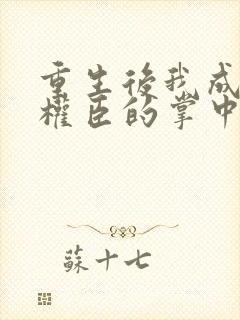 重生後我成
權臣的掌中
蘇十七